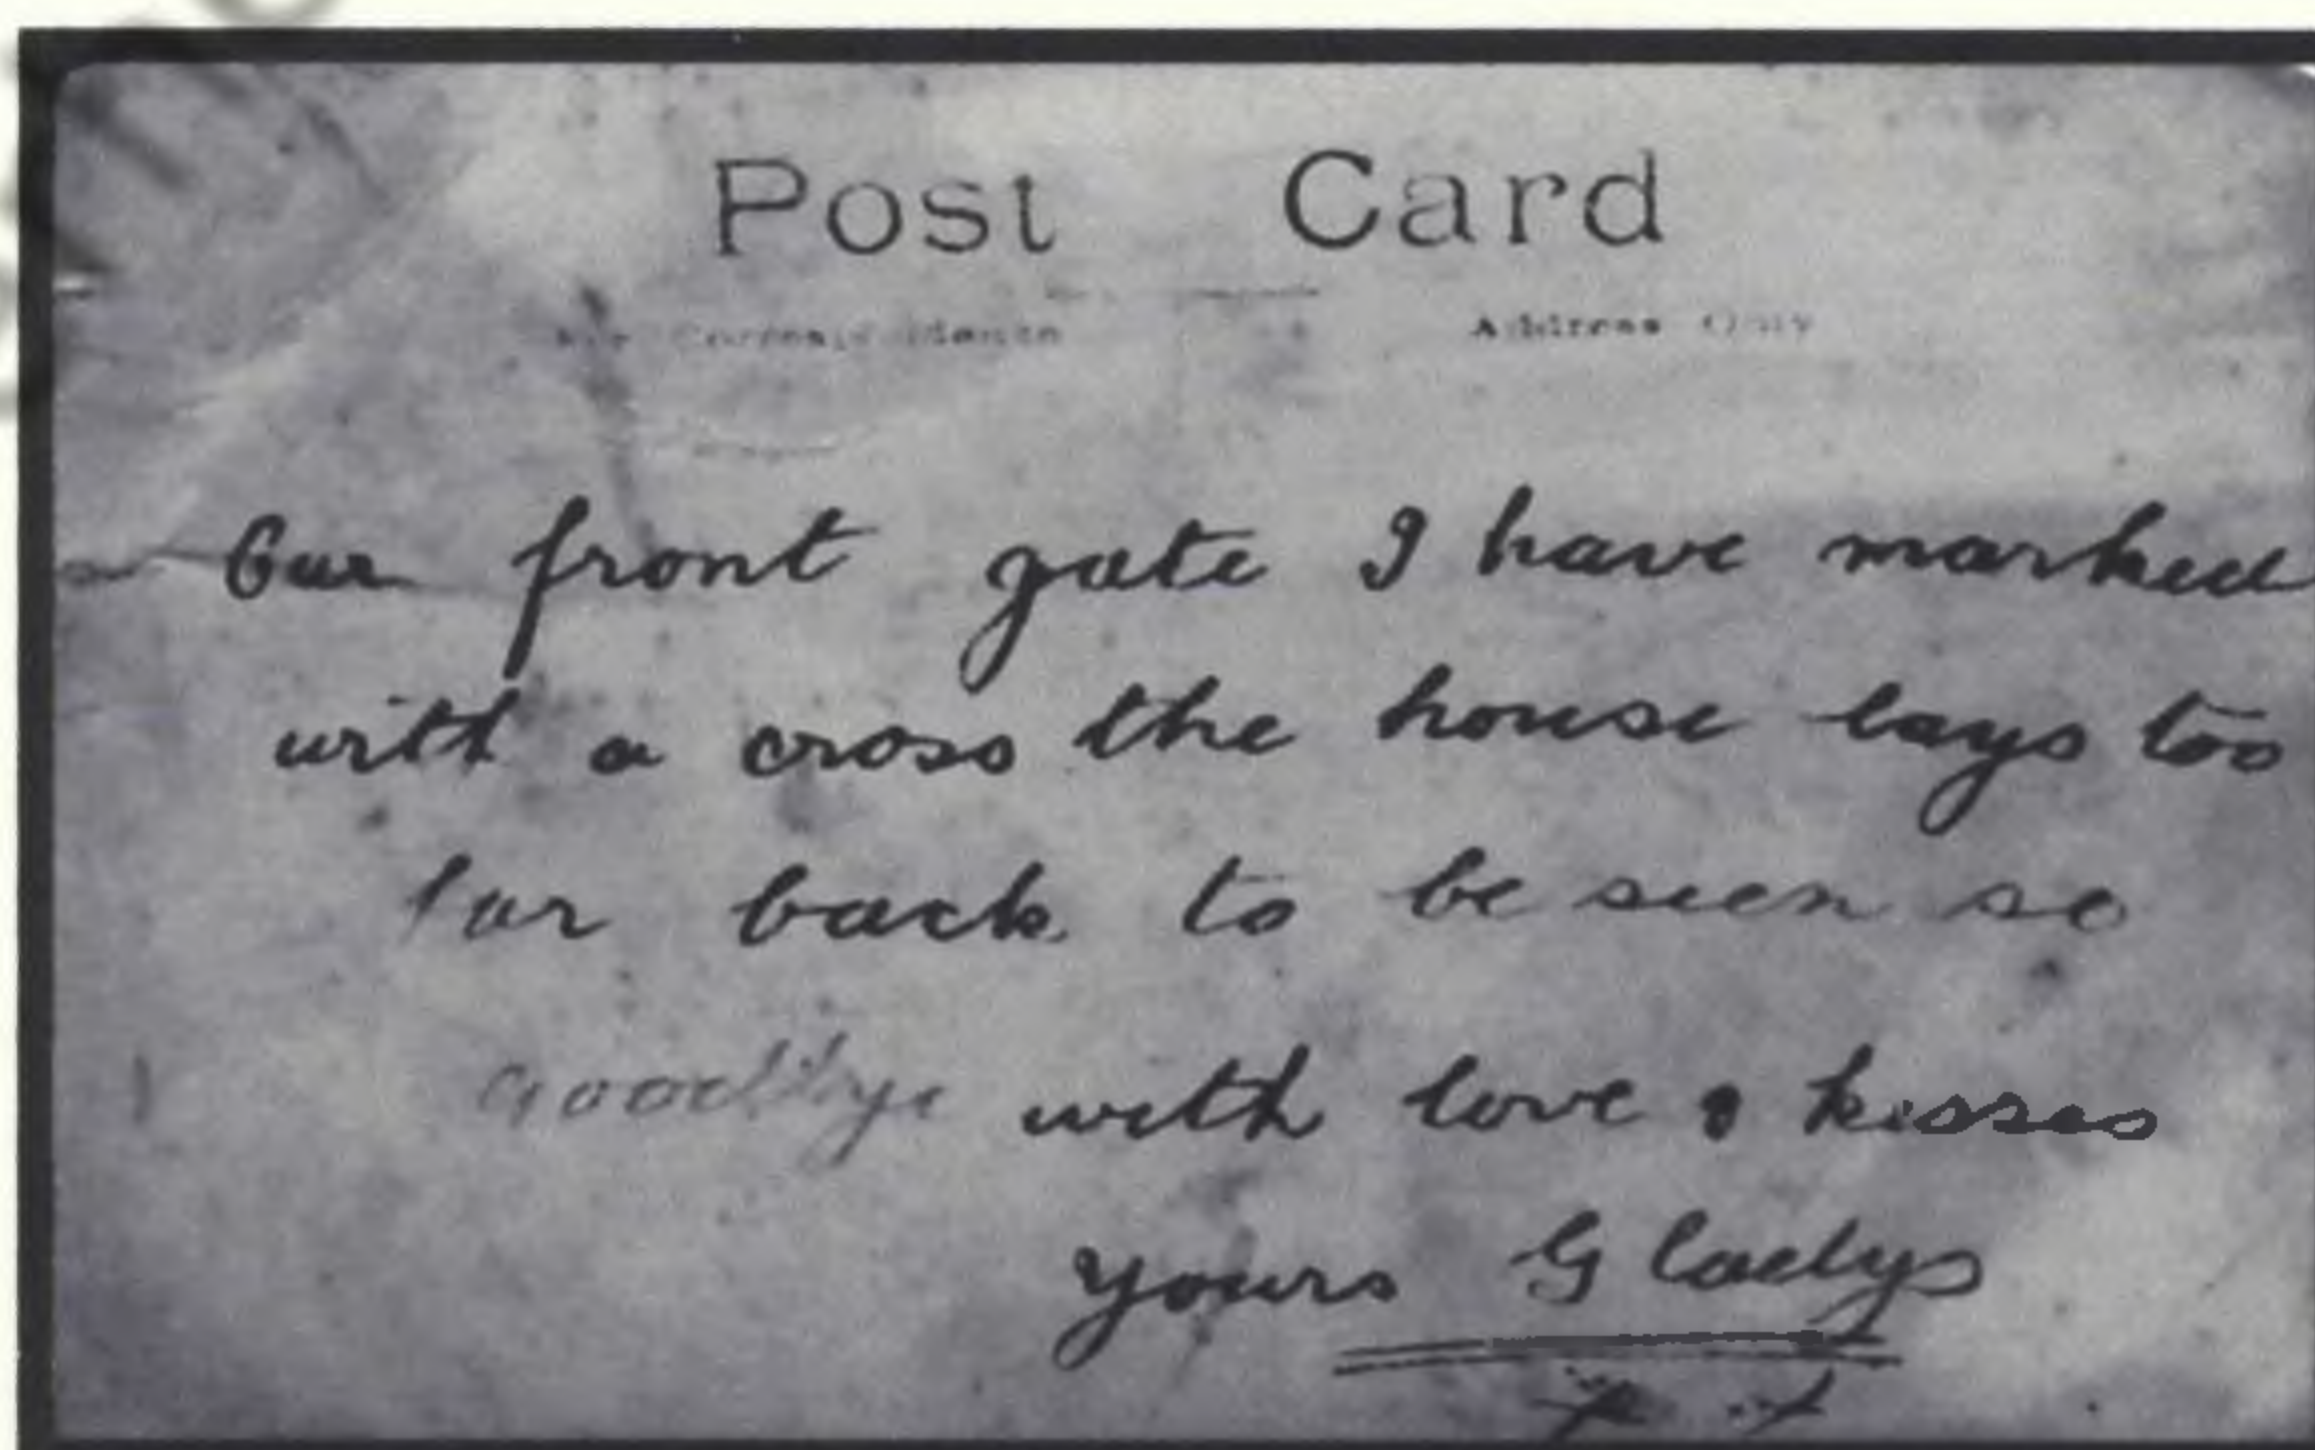 Post Card
For Correspondence Address Only
Our front gate I have marked
with a cross the house lays too
far back to be seen so
Goodbye with love & kisses
yours Gladys
x x